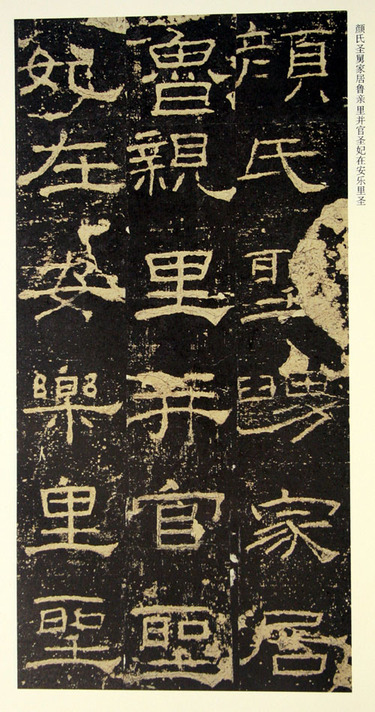 颜氏圣舅家居鲁亲里并官圣妃在安乐里圣
顔氏聖舅家居
魯親里并官聖
妃在安樂里聖